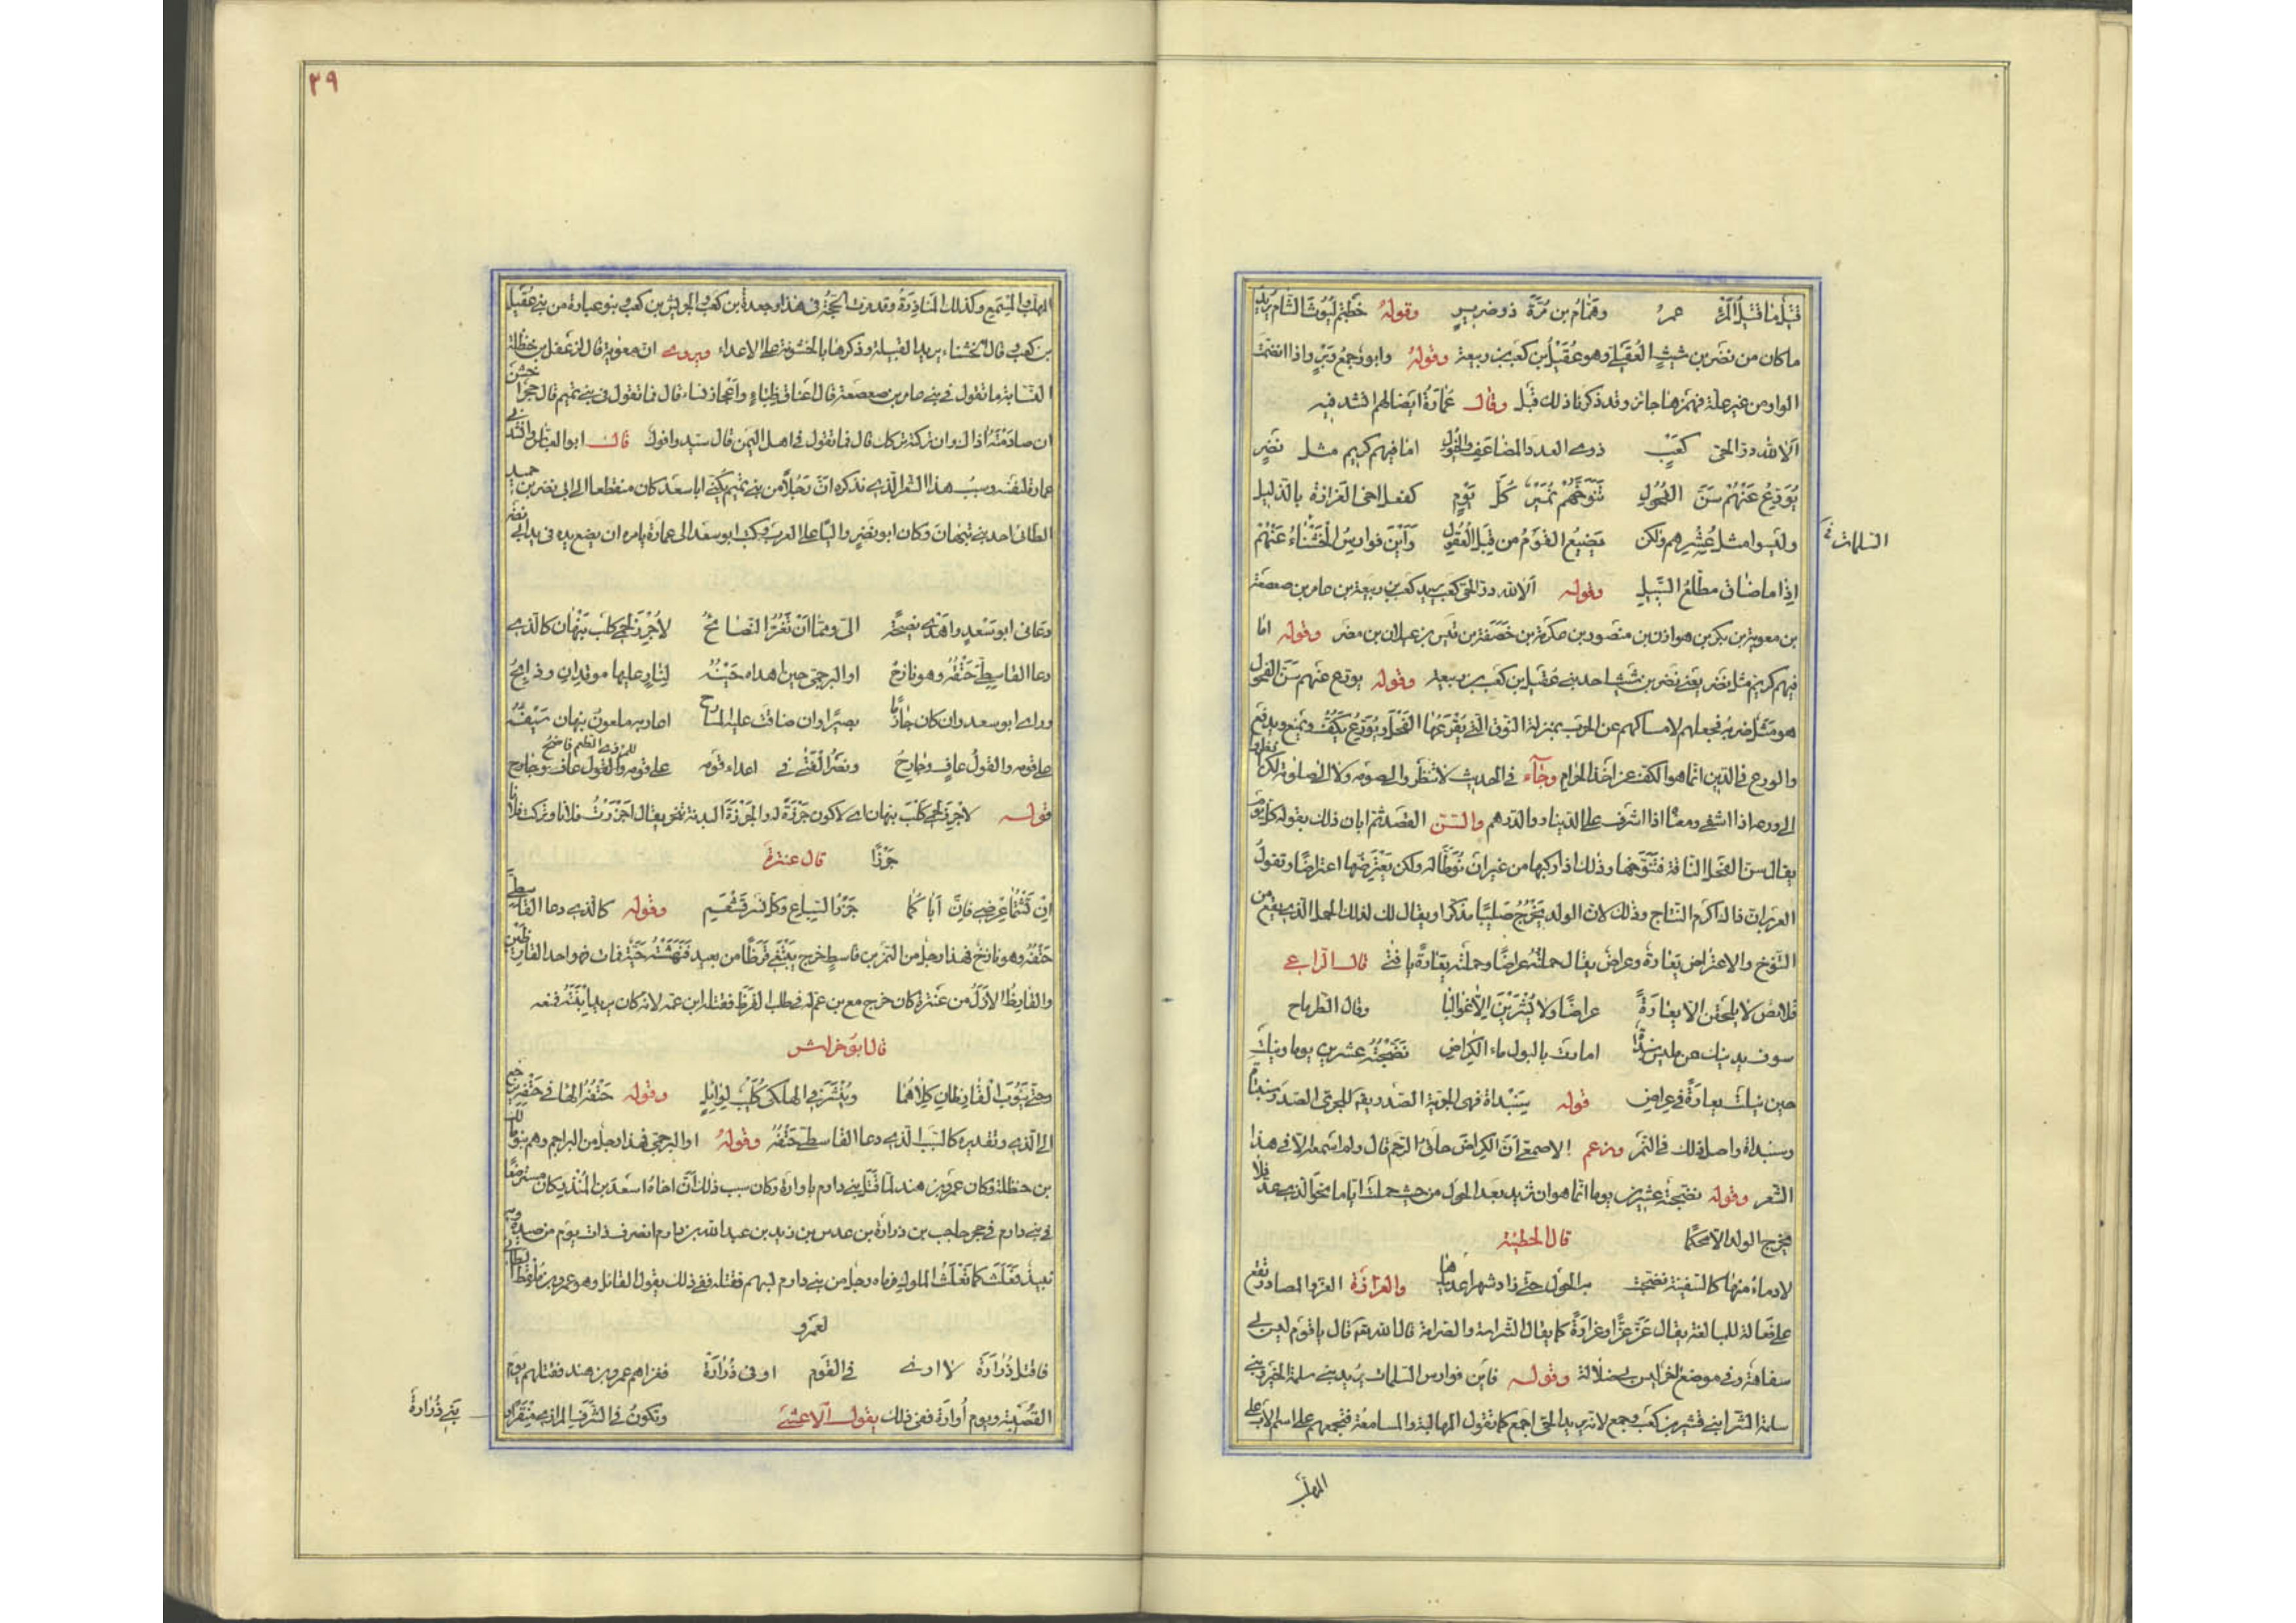 قتلنا قتيل المرء عمرو وهمام بن مرة ذو ضرير وقوله خطبتم ليوث الشام يريد
ما كان من نصر بن شبث العقيلي وهو عقيل بن كعب بن ربيعة وقوله وابوز جمع وبر واذا انضمت
الواو من غير علة فهمزها جائز وقد ذكرنا ذلك قبل وقال عمارة ايضا لهم انشدنيه
الا لله در الحى كعب ذوى العدد المضاعف والخيول اما فيهم كريم مثل نصر
يورع عنهم سنن الفحول تنوخهم نمير كل يوم كفعل اخى العزازة بالذليل
وليسوا مثل عشرهم ولكن يضيع القوم من قبل العقول واين فوارس الخشناء عنهم
السلمات
اذا ما ضاق مطلع السبيل وقوله الا لله در الحى كعب يريد كعب بن ربيعة بن عامر بن صعصعة
بن معوية بن بكر بن هوازن بن منصور بن عكرمة بن خصفة بن قيس بن عيلان بن مضر وقوله اما
فيهم كريم مثل نصر يعنى نصر بن شبث احد بنى عقيل بن كعب بن ربيعة وقوله يورع عنهم سنن الفحول
هو مثل ضربه فجعلهم لامساكهم عن الحرب بمنزلة النوق التى يقرعها الفحل ويورع يكف ويمنع ويدفع
والورع فى الدين انما هو الكف عن اخذ الحرام وجاء فى الحديث لا تنظروا الى صومه ولا الى صلوته ولكن انظروا
الى ورعه اذا اشفى ومعناه اذا اشرف على الدينار والدرهم والسنن القصد ثم ابان ذلك بقوله كل يوم
يقال سن الفحل الناقة فتنوخها وذلك اذا ركبها من غير ان توطا له ولكن يعترضها اعتراضا وتقول
العرب ان ذلك اكرم النتاج وذلك لان الولد يخرج صليبا مذكرا ويقال لذلك الحمل الذى يقع من
التنوخ والاعتراض يعارة وعراض يقال حملته عراضا وحملته يعارة يا فتى قال الراعى
قلائص لا يلقحن الا يعارة عراضا ولا يشرين الا غواليا وقال الطرماح
سوف يدنيك من لميس سبنداة امارت بالبول ماء الكراض نضجته عشرين يوما ونيلت
حين نيلت يعارة فى عراض قوله سبنداة فهى الجرية الصدر يقال للجرى الصدر سبنتاة
وسبنداة واصل ذلك فى النمر وزعم الاصمعى ان الكراض حلق الرحم قال ولم اسمعه الا فى هذا
الشعر وقوله نضجته عشرين يوما انما هو ان تزيد بعد الحول من حيث حملت اياما نحو الذى عد فلا
يخرج الولد الا محكما قال الحطيئة
لادماء منها كالسفينة نضجت به الحول حتى زاد شهرا عديدها والعزازة العز والمصادر تقع
على فعالة للمبالغة يقال عز عزا وعزازة كما يقال الشراسة والصرامة قال الله تعه قال يا قوم ليس بى
سفاهة وفى موضع اخر ليس بى ضلالة وقوله فاين فوارس السلمات يريد بنى سلمة الخير وبنى
سلمة الشر ابنى قشير بن كعب وجمع لانه يريد الحى اجمع كما تقول المهالبة والمسامعة فتجمعهم على اسم الاب على
المهلب
٣٩
المهلب والمسمع وكذلك المناذرة وقد مرت الحجة فى هذا وجعدة بن كعب والحريش بن كعب وبنو عبادة من بنى عقيل
بن كعب وقال الخشناء يريد القبيلة وذكرها بالخشونة على الاعداء ويروى ان معوية قال لدغفل بن حنظلة
النسابة ما تقول فى بنى عامر بن صعصعة قال اعناق ظباء واعجاز نساء قال فما تقول فى بنى تميم قال حجر اخشن
ان صادمته اذاك وان تركته تركك قال فما تقول فى اهل اليمن قال سيد وانوك قال ابو العباس وانشدنى
عمارة لنفسه وسبب هذا الشعر الذى نذكره ان رجلا من بنى تميم يكنى ابا سعد كان منقطعا الى ابى نصر بن حميد
الطائى احد بنى نبهان وكان ابو نصر واليا على العرب فكتب ابو سعد الى عمارة يامره ان يضع يده فى يد ابى نصر
دعانى ابو سعد واهدى نصيحة الى ومما ان تغر النصائح لاجزر لحمى كلب نبهان كالذى
دعا القاسطى حتفه وهو نازح او البرجمى حين اهداه حينه لنار عليها موقدان وذابح
وراى ابو سعد وان كان حازما بصيرا وان ضاقت عليه المسارح اعار به ملعون نبهان سيفه
على قومه والقول عاف وجارح ونصر الفتى فى اعداء قومه على قومه والقول عاف وجارح
قوله لاجزر لحمى كلب نبهان اى لاكون جزرة له والجزرة البدنة تنحر يقال اجزرت فلانا وتركت فلانا
جزرا قال عنترة
ان تشتما عرضى فان اباكما جزر السباع وكل نسر قشعم وقوله كالذى دعا القاسطى
حتفه وهو نازح فهذا رجل من النمر بن قاسط خرج يبتغى قرظا من بعيد فنهشته حية فمات فهو احد القارظين
والقارظ الاول من عنزة كان خرج مع بن عم له فى طلب القرظ فقتله ابن عمه لانه كان يريد ابنته فمنعه
قال ابو خراش
وحتى يئوب القارظان كلاهما وينشر فى الهلكى كليب لوائل وقوله حتفه الهاء فى حتفه ترجع
الى الذى وتقديره كالسبب الذى دعا القاسطى حتفه وقوله او البرجمى فهذا رجل من البراجم وهم بنو مالك
بن حنظلة وكان عمرو بن هند لما قتل بنى دارم باوارة وكان سبب ذلك ان اخاه اسعد بن المنذر كان مسترضعا
فى بنى دارم فى حجر حاجب بن زرارة بن عدس بن زيد بن عبد الله بن دارم انصرف ذات يوم من صيده وبه
نبيذ فعبث كما تعبث الملوك فرماه رجل من بنى دارم بسهم فقتله ففى ذلك يقول القائل وهو عمرو بن ملقط الطائى
لعمرو
فاقتل زرارة لا ارى فى القوم اوفى من زرارة فغزاهم عمرو بن هند فقتلهم يوم
القصيبة ويوم اوارة ففى ذلك يقول الاعشى وتكون فى الشرف الموازى منقرا و
بنى زرارة